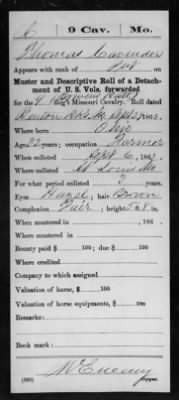 C | 9 Cav. | Mo.
Thomas Cavender
Appears with rank of Pvt on
Muster and Descriptive Roll of a Detachment
of U. S. Vols. forwarded
for the 9 Reg't Missouri Cavalry. Roll dated
Benton Bks Mo Sept 186 .
Where born Ohio
Age 22 years; occupation Farmer
When enlisted Sept 6, 186 .
Where enlisted St Louis Mo
For what period enlisted 3 years.
Eyes Hazel; hair Brown
Complexion Fair; height 5 ft. 8 in.
When mustered in , 186 .
Where mustered in
Bounty paid $ 100; due $ 100
Where credited
Company to which assigned
Valuation of horse, $ 100
Valuation of horse equipments, $ 100
Remarks:
Book mark:
McEneny
Copyist.